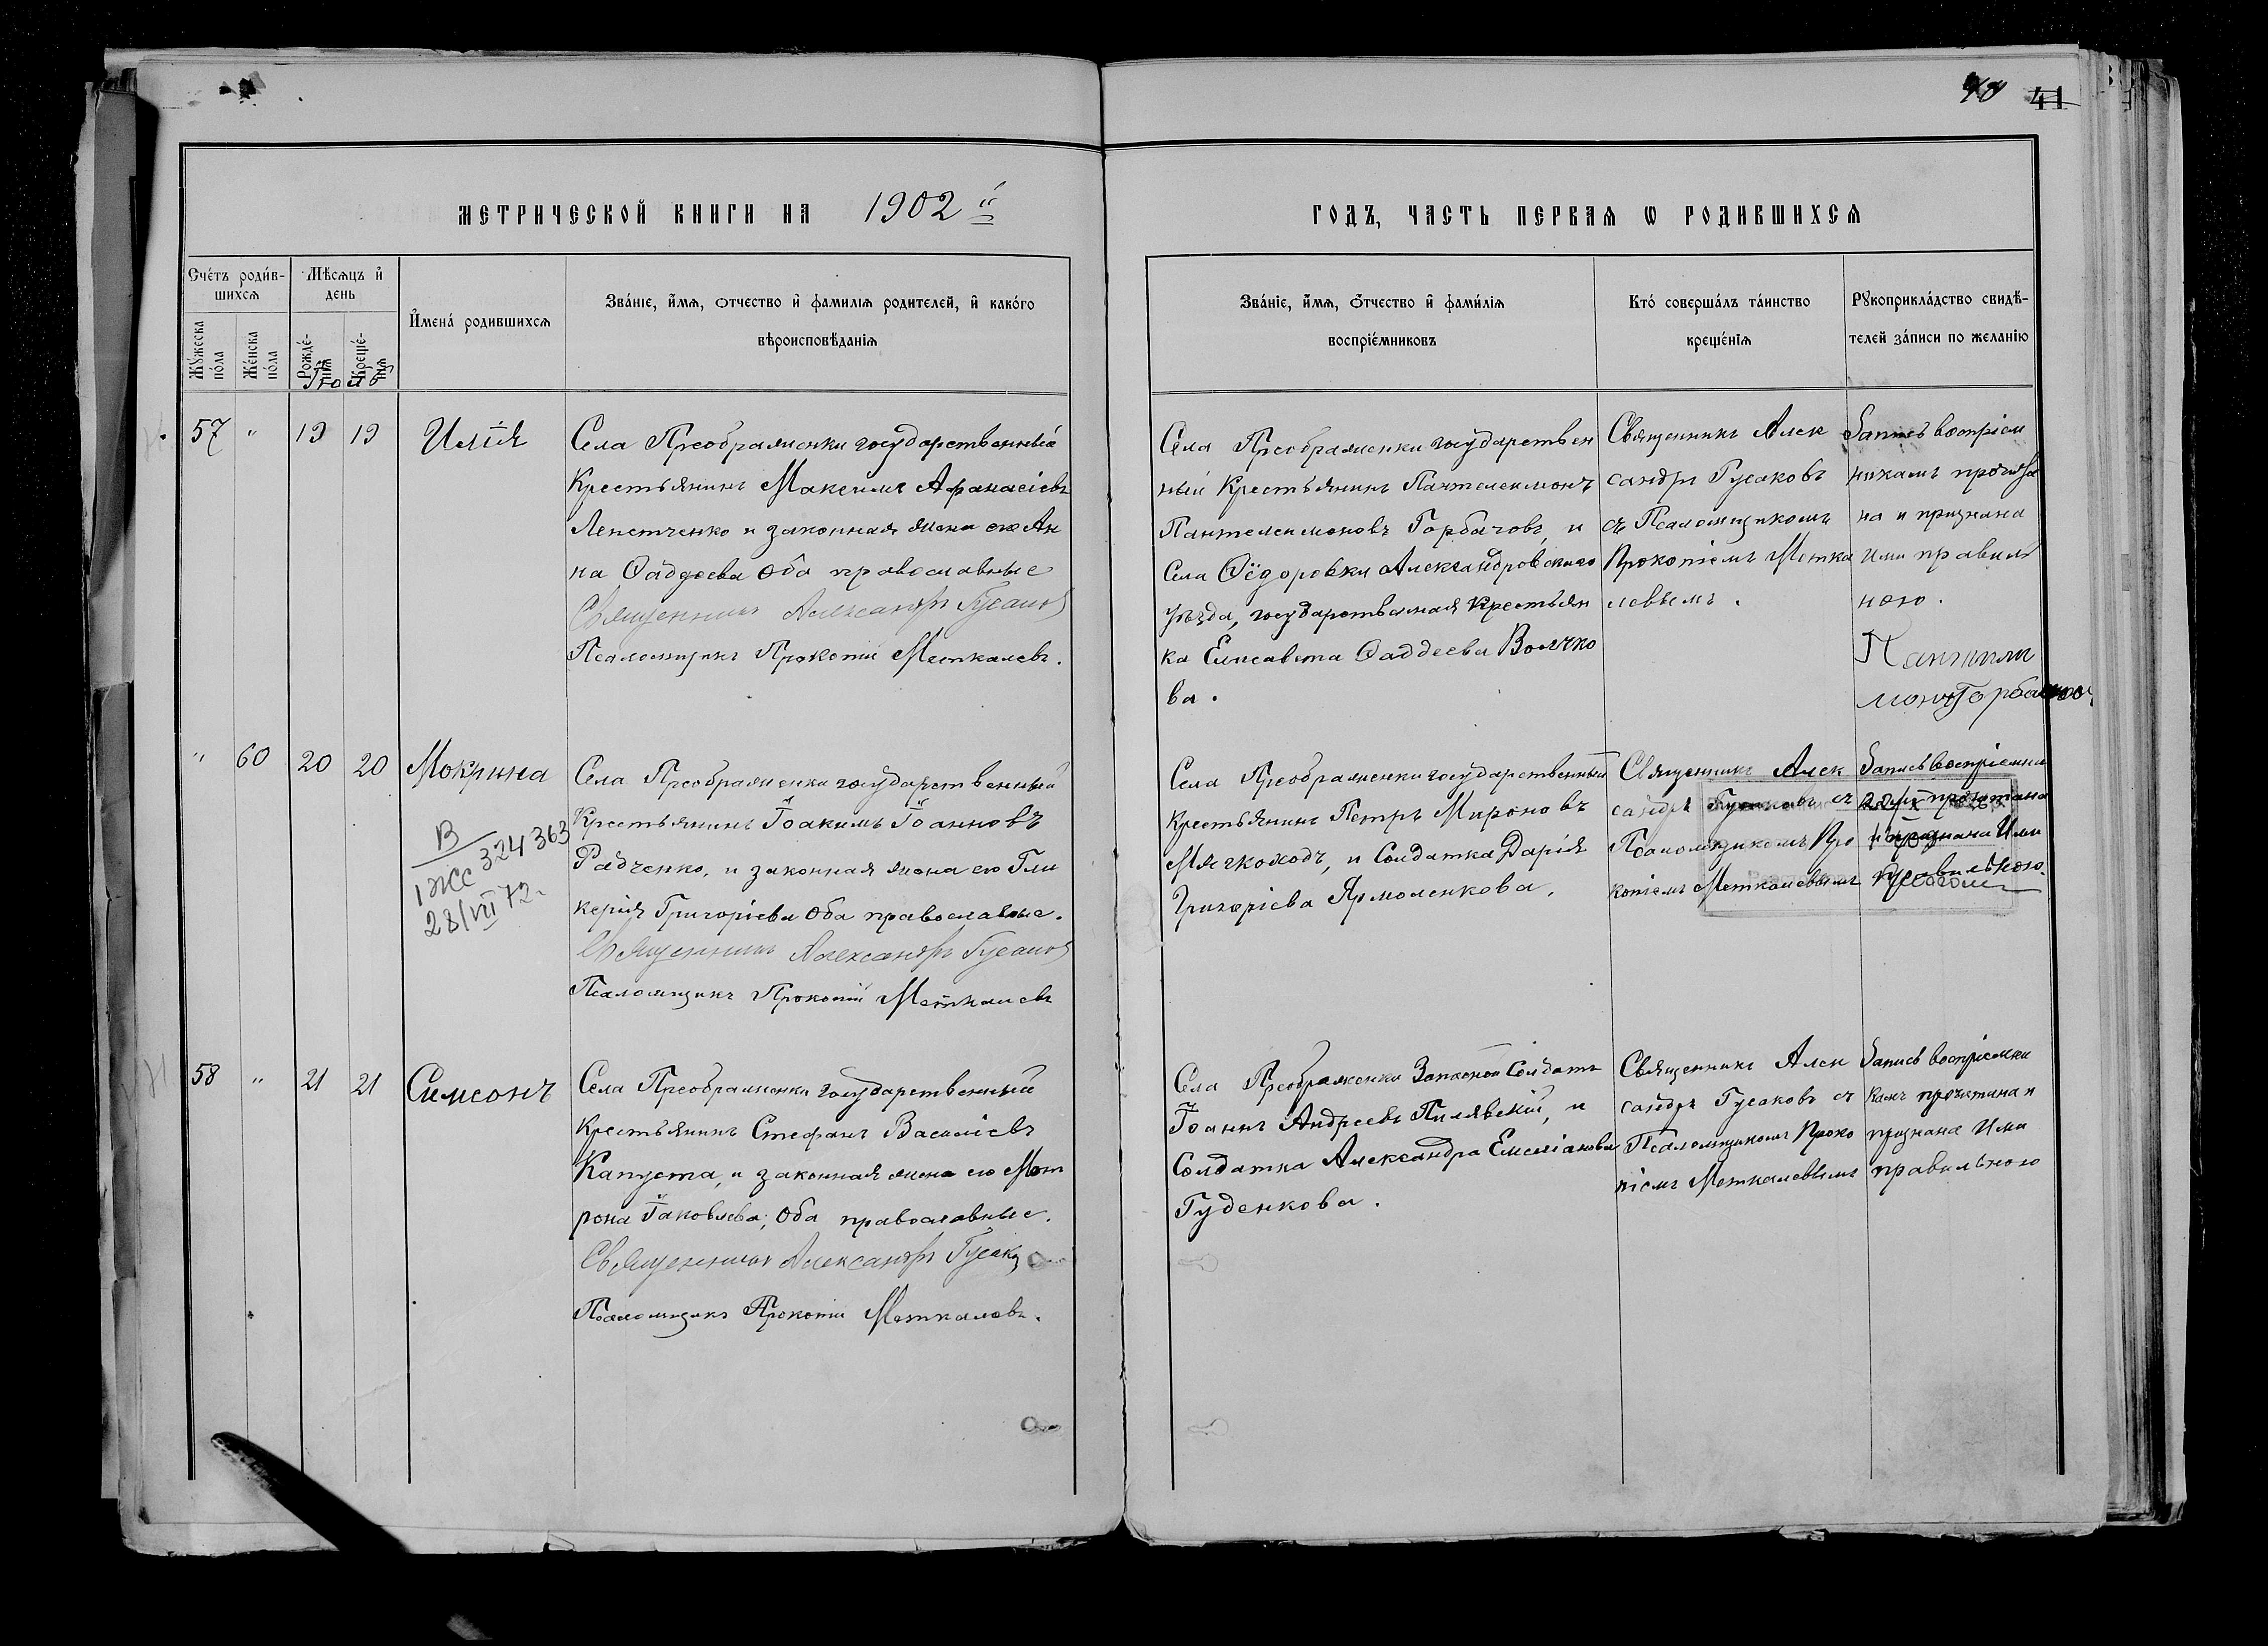 40 41
МЕТРИЧЕСКОЙ КНИГИ НА 1902 й
ГОДЪ, ЧАСТЬ ПЕРВАЯ Ѡ РОДИВШИХСЯ
Счетъ родив-
шихся
Мѣсяцъ и
день
Мужеска
пола
Женска
пола
Рожде-
нія
Креще-
нія
Имена родившихся
Званіе, имя, отчество и фамилія родителей, и какого
вѣроисповѣданія
Званіе, имя, отчество и фамилія
воспріемниковъ
Кто совершалъ таинство
крещенія
Рукоприкладство свидѣ-
телей записи по желанію
57 " 19 19 Илія
Села Преображенки государственный
Крестьянинъ Максимъ Афанасіевъ
Лепетченко и законная жена его Ан
на Фаддѣева оба православные
Священникъ Александръ Гусаковъ
Псаломщикъ Прокопій Меткалевъ.
Села Преображенки государствен
ный Крестьянинъ Пантелеимонъ
Пантелеимоновъ Горбачовъ, и
Села Ѳёдоровки Александровскаго
уѣзда, государственная Крестьян
ка Елисавета Фаддеева Волчко
ва.
Священникъ Алек
сандръ Гусаковъ
съ Псаломщикомъ
Прокопіемъ Метка
левымъ.
Запись воспріем
никамъ прочита
на и признана
ими правиль
ною.
Пантили
монъ Горбачов
" 60 20 20 Мокрина
В
1 ЖС 324363
28/VII 72 г.
Села Преображенки государственный
Крестьянинъ Іоакимъ Іоанновъ
Радченко, и законная жена его Гли
керія Григоріева оба православные.
Священникъ Александръ Гусаковъ
Псаломщикъ Прокопій Меткалевъ
Села Преображенки государственный
крестьянинъ Петръ Мироновъ
Мягкоходъ, и Солдатка Дарія
Григоріева Ярмоленкова.
Священникъ Алек
сандръ Гусаковъ съ
Псаломщикомъ Про
копіемъ Меткалевымъ
Запись воспріемни
камъ прочитана
и признана Ими
правильною.
58 " 21 21 Симеонъ
Села Преображенки государственный
Крестьянинъ Стефанъ Василіевъ
Капуста, и законная жена его Мат
рона Іаковлева; Оба православные.
Священникъ Александръ Гусаковъ
Псаломщикъ Прокопій Меткалевъ.
Села Преображенки Запасной Солдатъ
Іоаннъ Андреевъ Пилявскій, и
Солдатка Александра Емеліанова
Гуденкова.
Священникъ Алек
сандръ Гусаковъ съ
Псаломщикомъ Проко
піемъ Меткалевымъ
Запись воспріемни
камъ прочитана и
признана Ими
правильною